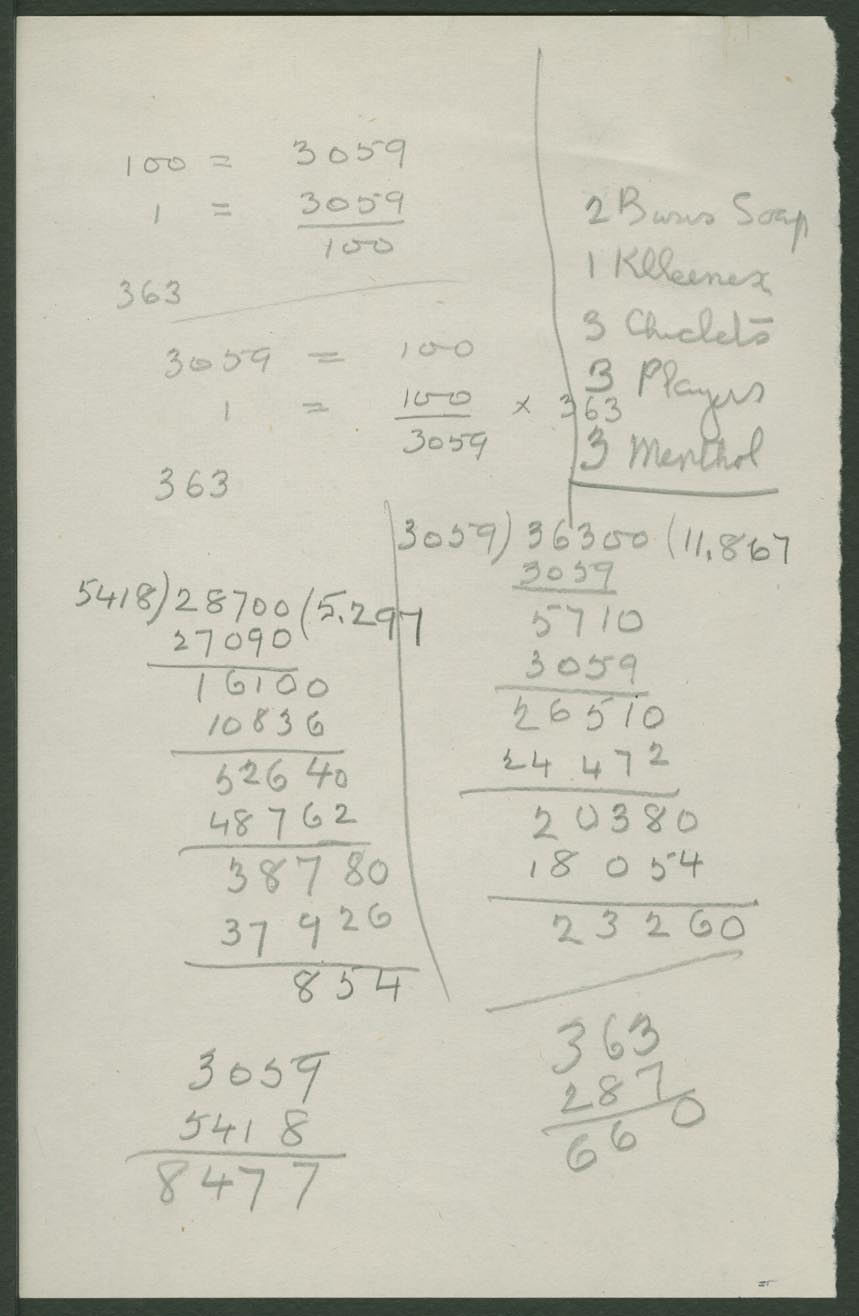 100 = 3059
1 = 3059
100
363
3059 = 100
1 = 100 × 363
3059
363
2 Bars Soap
1 Klleenex
3 Chiclets
3 Players
3 Menthol
5418)28700(5.297
27090
16100
10836
52640
48762
38780
37926
854
3059
5418
8477
3059)36300(11.867
3059
5710
3059
26510
24472
20380
18054
23260
363
287
660